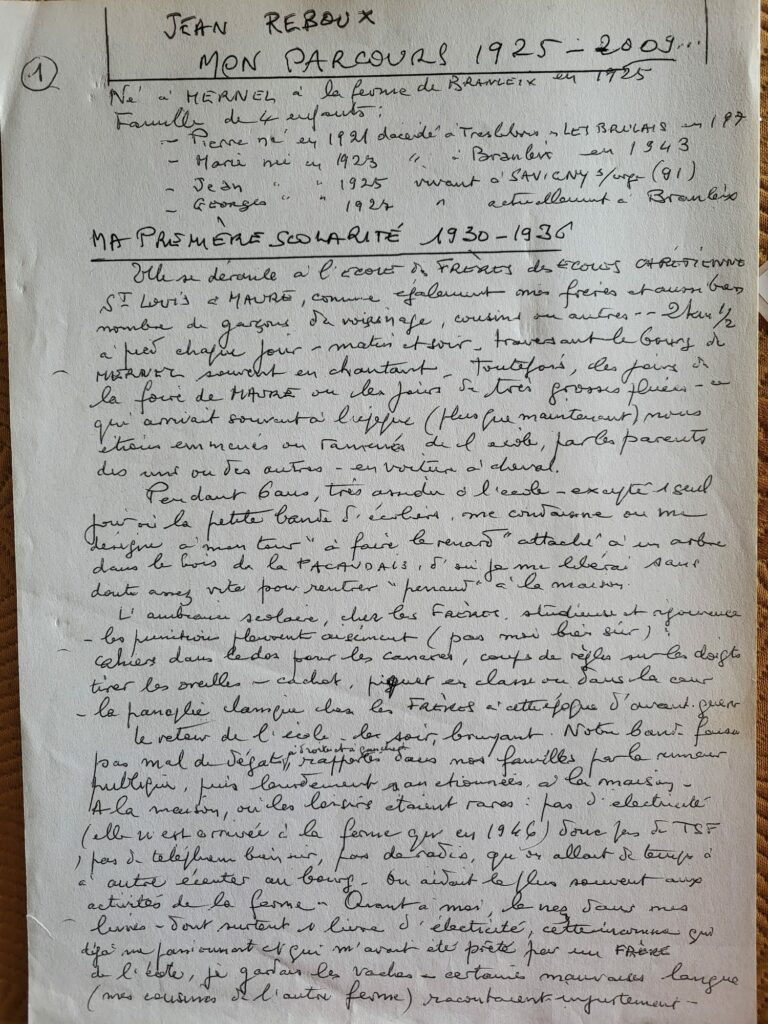 JEAN REBOUX
MON PARCOURS 1925-2009...
1
Né à MERNEL à la ferme de BRANLEIX en 1925
Famille de 4 enfants :
- Pierre né en 1921 décédé à LES BRULAIS en 197
- Marie née en 1923 " à Branleix en 1943
- Jean " " 1925 vivant à SAVIGNY s/orge (91)
- Georges " " 1927 " actuellement à Branleix
MA PREMIÈRE SCOLARITÉ 1930-1936
Elle se déroule à l'ECOLE des FRÈRES des ECOLES CHRÉTIENNE
ST Louis à MAURE, comme également mes frères et aussi bon
nombre de garçons du voisinage, cousins ou autres -- 2 km 1/2
à pied chaque jour - matin et soir - traversant le bourg de
MERNEL souvent en chantant - Toutefois, des jours de
la foire de MAURE ou les jours de très grosses pluies -
qui arrivait souvent à l'époque (plus que maintenant) nous
étions emmenés ou ramenés de l'école, par les parents
des uns ou des autres - en voiture à cheval.
Pendant 6 ans, très assidu à l'école - excepté 1 seul
jour où la petite bande d'écoliers, me condamne ou me
désigne à mon tour "à faire le renard" attaché à un arbre
dans le bois de la PACAUDAIS, d'où je me libérai sans
doute assez vite pour rentrer "penaud" à la maison.
L'ambiance scolaire, chez les FRÈRES, studieuse et rigoureuse
- les punitions pleuvent aisément (pas moi bien sûr) :
cahiers dans le dos pour les cancres, coups de règles sur les doigts
tirer les oreilles - cachot, piquet en classe ou dans la cour
- la panoplie classique chez les FRÈRES à cette époque d'avant guerre
Le retour de l'école - les soir, bruyant. Notre bande faisai
pas mal de dégats, à droite et à gauche rapportés dans nos familles par la rumeur
publique, puis lourdement sanctionnées, à la maison -
A la maison, où les loisirs étaient rares : pas d'électricité
(elle n'est arrivée à la ferme qu'en 1946) donc pas de TSF
, pas de téléphone bien sûr, pas de radio, qu'on allait de temps à
à autre écouter au bourg - On aidait le plus souvent aux
activités de la ferme - Quant à moi, le nez dans mes
livres - dont surtout 1 livre d'électricité, cette inconnue qui
déjà me passionnait et qui m'avait été prêté par un FRÈRE
de l'école, je gardais les vaches - certaines mauvaises langue
(mes cousines de l'autre ferme) racontaient injustement -